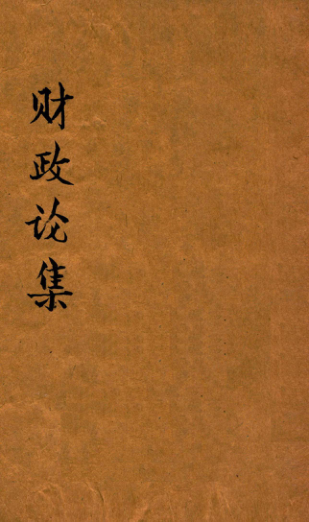 财政论集